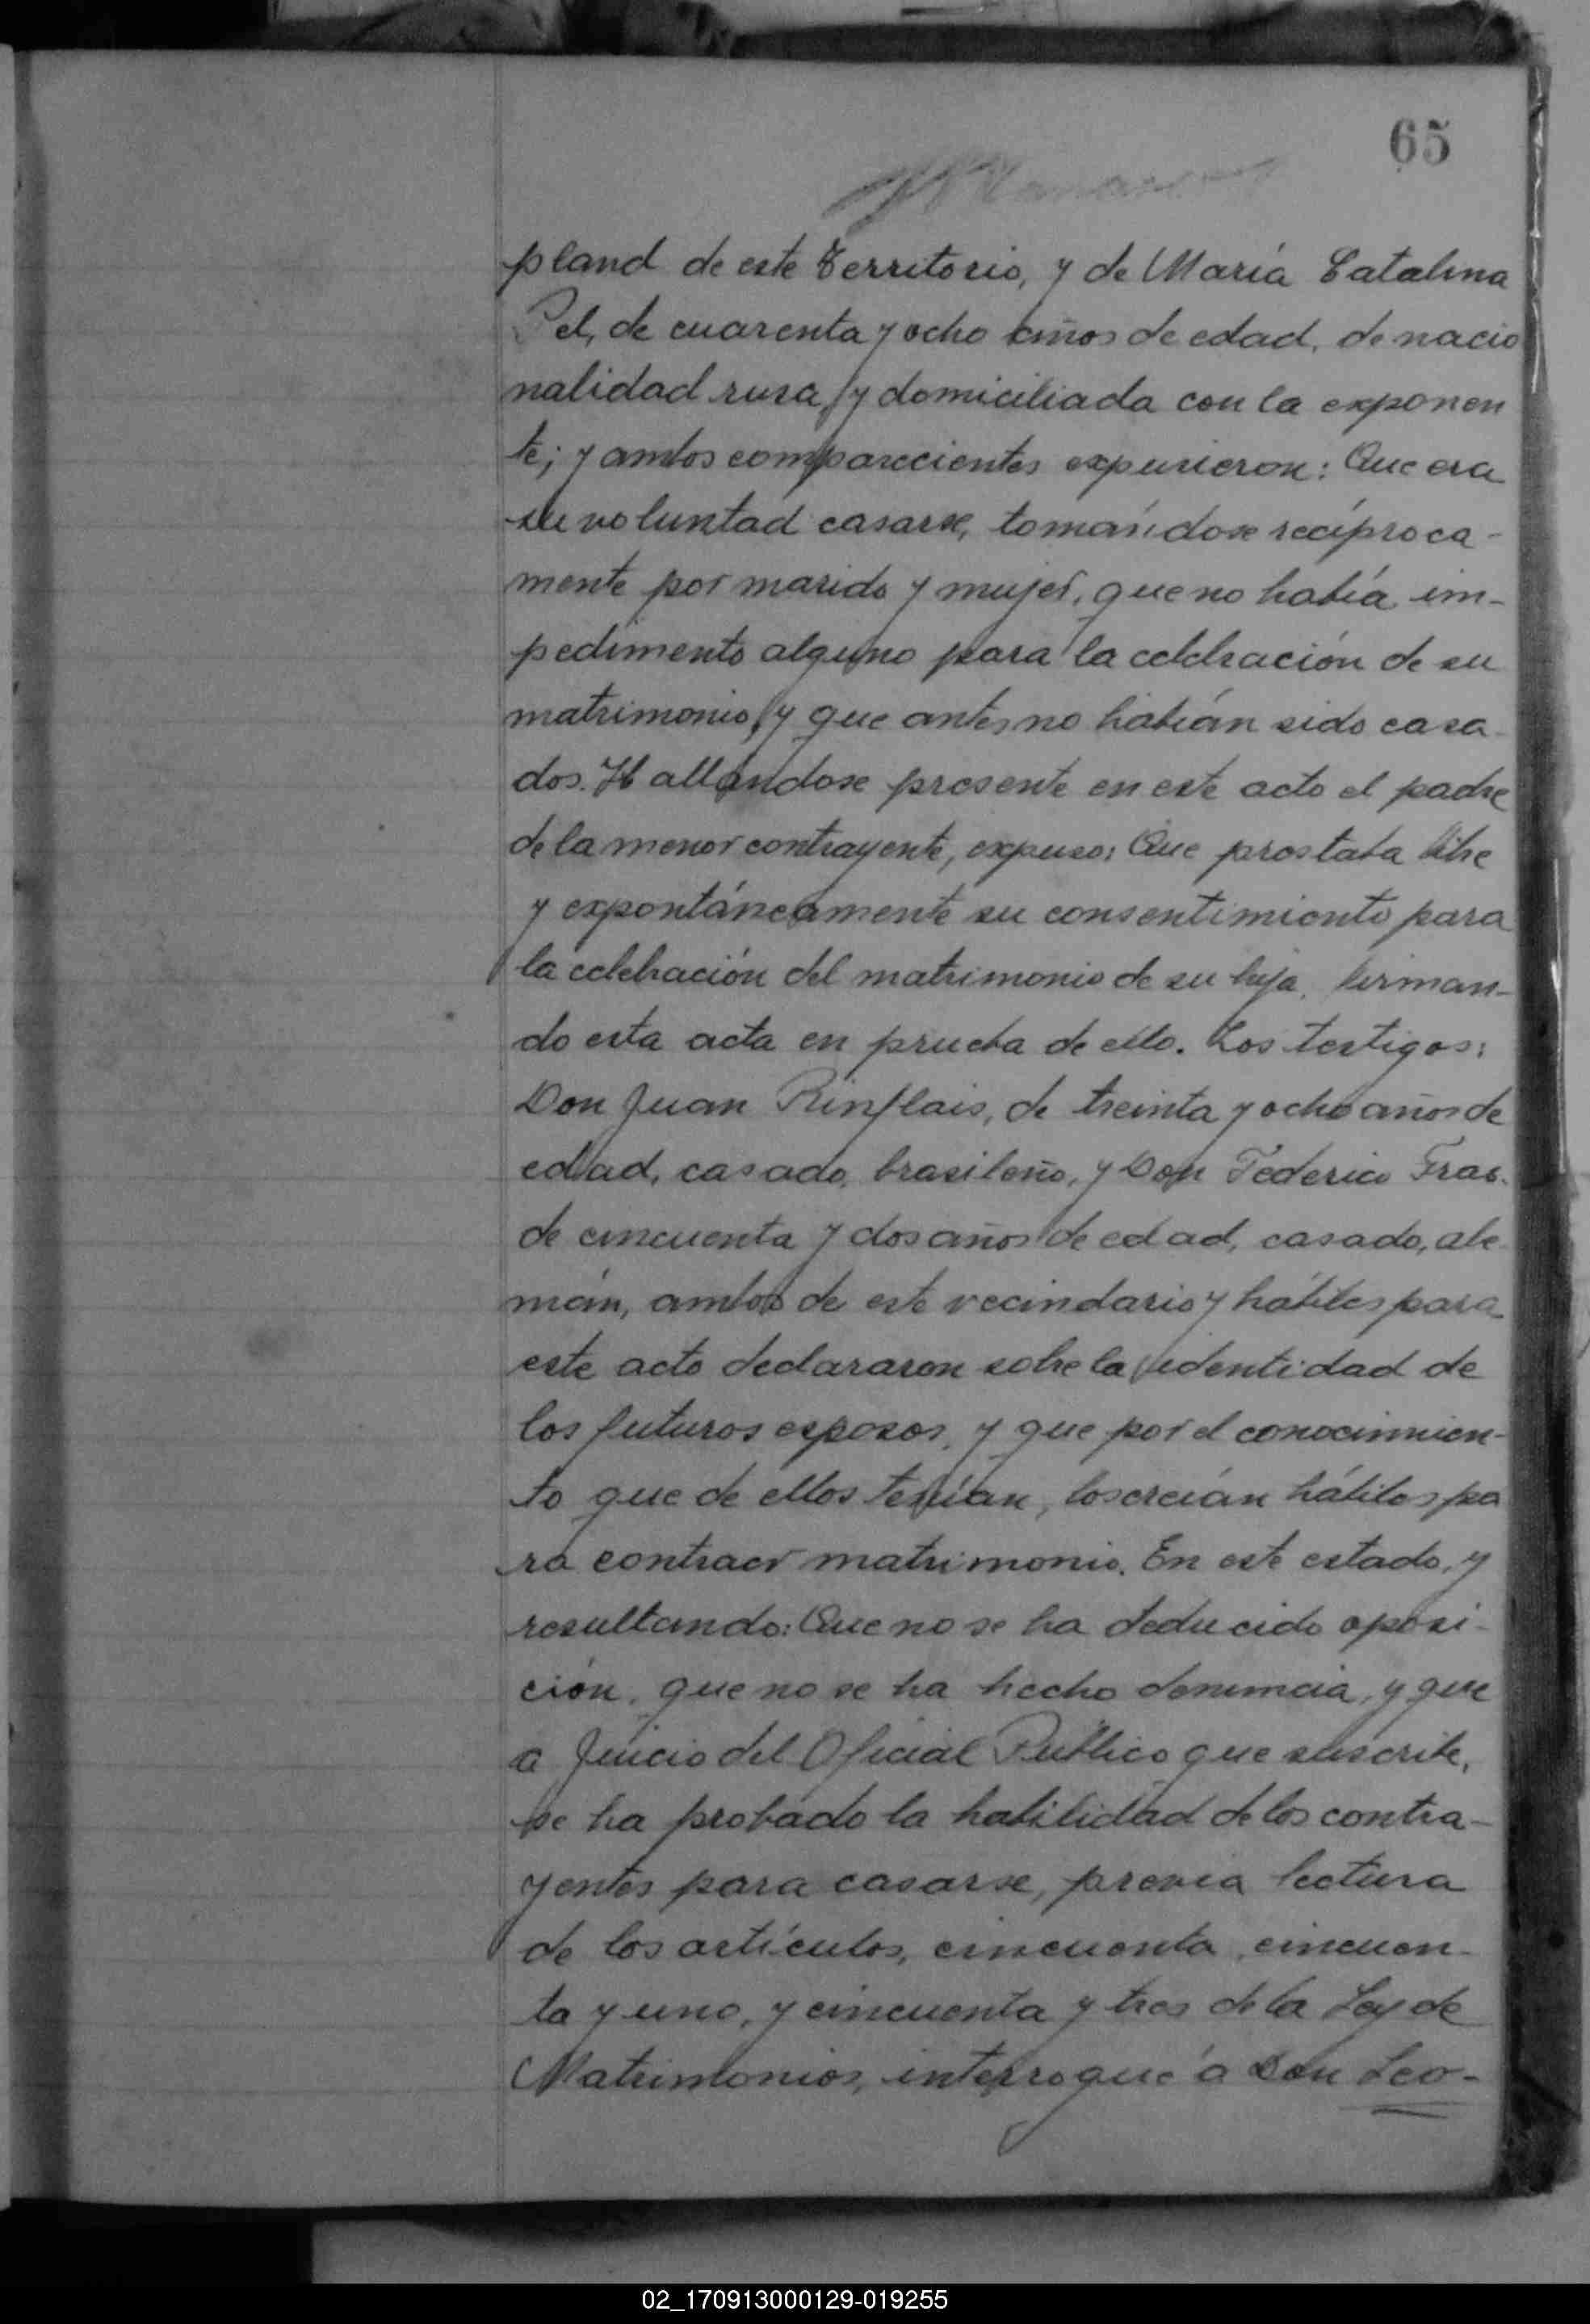 65
pland de este Territorio, y de María Catalina
Pel, de cuarenta y ocho años de edad, de nacio
nalidad rusa, y domiciliada con la exponen
te; y ambos comparecientes expusieron: Que era
su voluntad casarse, tomándose recíproca-
mente por marido y mujer, que no había im-
pedimento alguno para la celebración de su
matrimonio, y que antes no habían sido casa-
dos. Hallándose presente en este acto el padre
de la menor contrayente, expuso: Que prestaba libre
y expontáneamente su consentimiento para
la celebración del matrimonio de su hija, firman-
do esta acta en prueba de ello. Los testigos:
Don Juan Rinflais, de treinta y ocho años de
edad, casado, brasileño, y Don Federico Fras.
de cincuenta y dos años de edad, casado, ale
mán, ambos de este vecindario y hábiles para
este acto declararon sobre la identidad de
los futuros esposos, y que por el conocimien-
to que de ellos tenían, los creían hábiles pa
ra contraer matrimonio. En este estado, y
resultando: Que no se ha deducido oposi-
ción, que no se ha hecho denuncia, y que
a Juicio del Oficial Público que suscribe,
se ha probado la habilidad de los contra-
yentes para casarse, previa lectura
de los artículos, cincuenta, cincuen-
ta y uno, y cincuenta y tres de la Ley de
Matrimonios, interrogué á Don Leo-
02_170913000129-019255